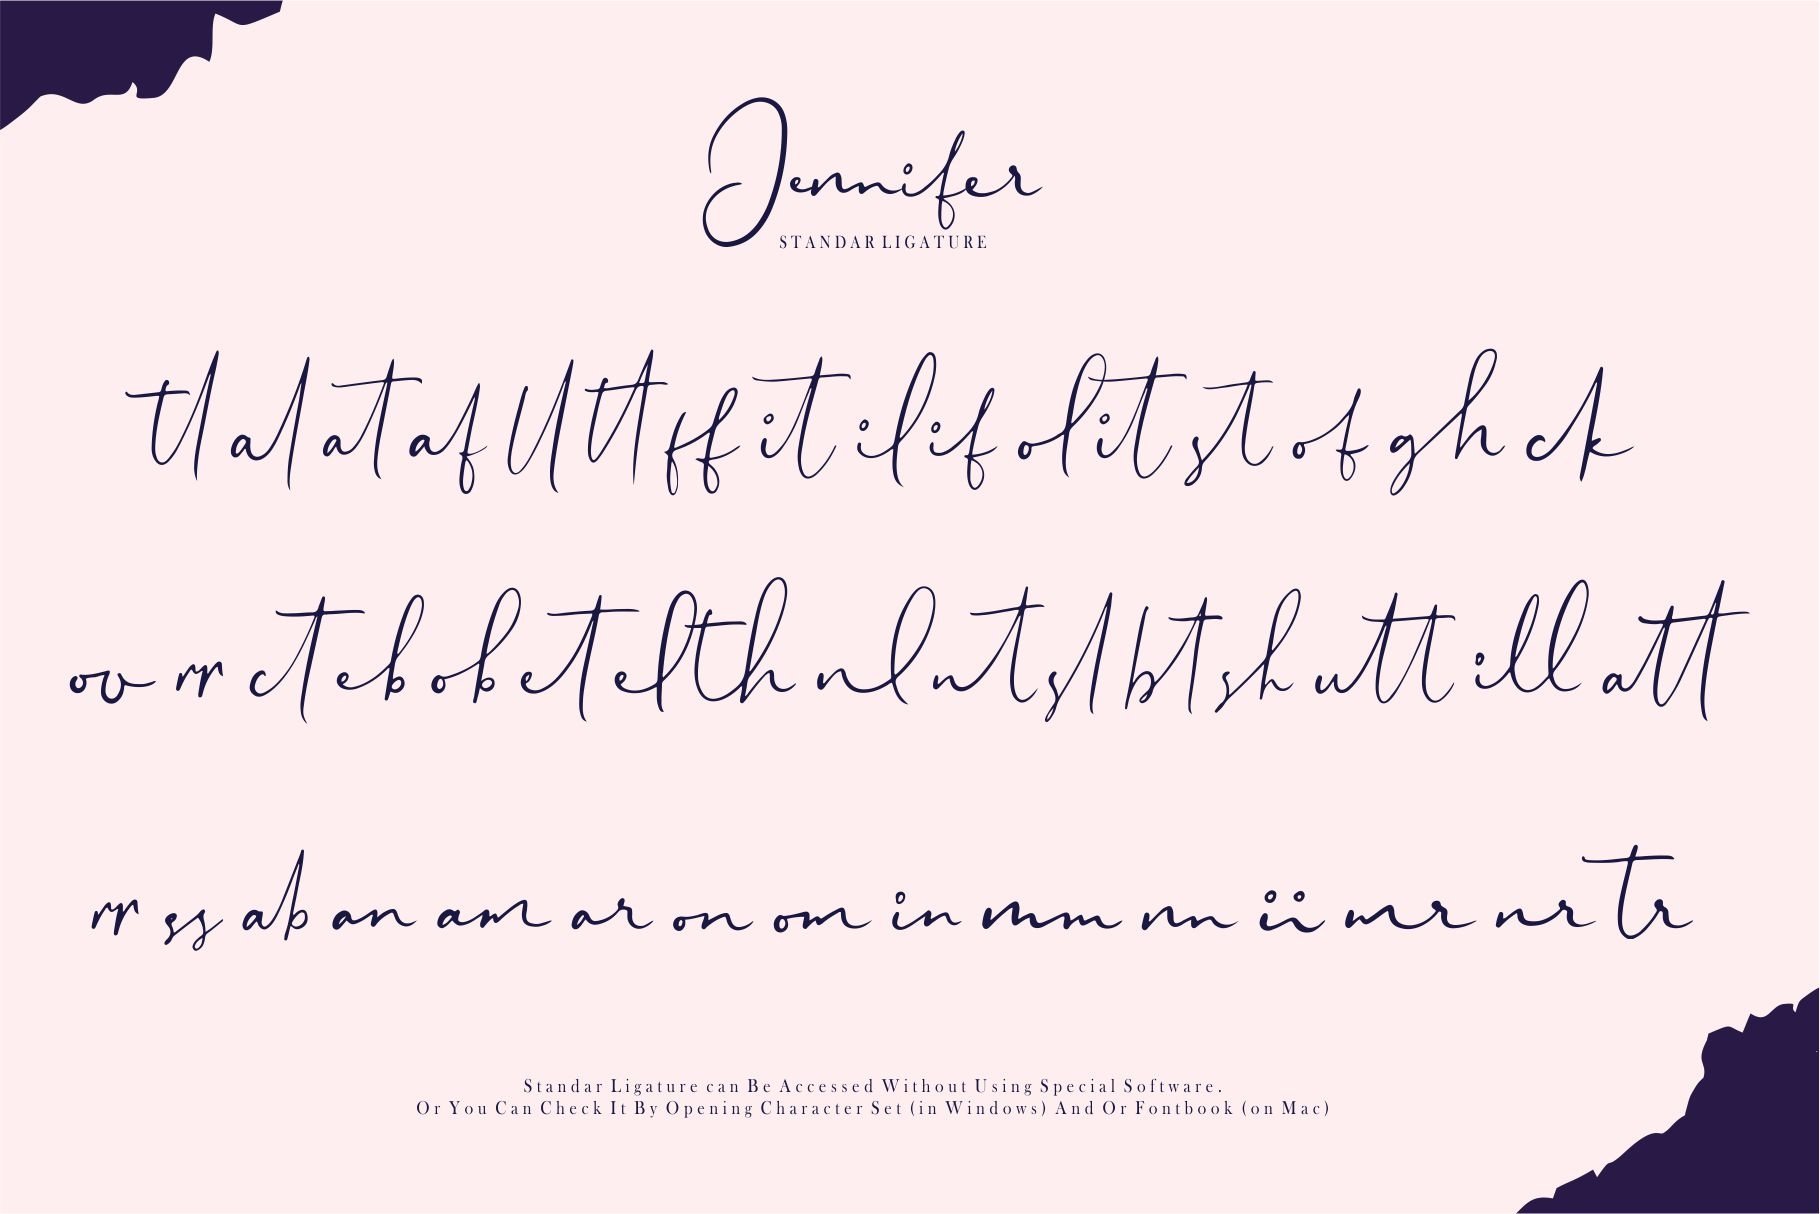 Jennifer
STANDAR LIGATURE
tl al at af ll tt ff it il if ol it st of gh ck
ov rr ct eb ob et el th nl nt sl bt sh utt ill att
rr ss ab an am ar on om in mm nn ii mr nr tr
Standar Ligature can Be Accessed Without Using Special Software.
Or You Can Check It By Opening Character Set (in Windows) And Or Fontbook (on Mac)